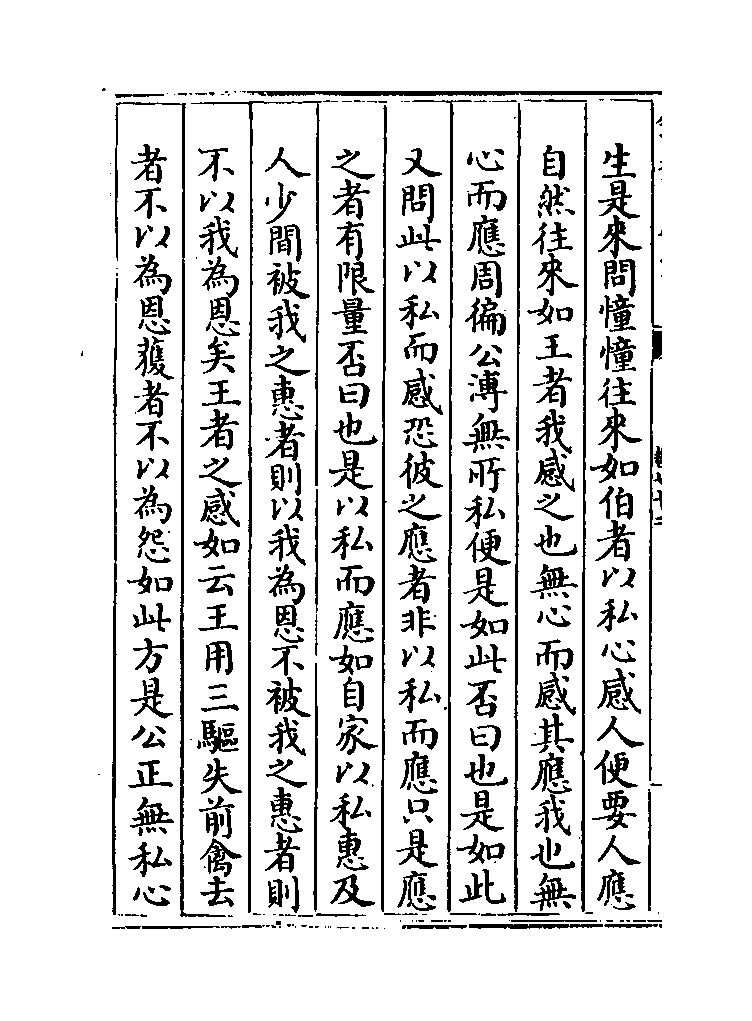 生是來問憧憧往來如伯者以私心感人便要人應
自然往來如王者我感之也無心而感其應我也無
心而應周徧公溥無所私便是如此否曰也是如此
又問此以私而感恐彼之應者非以私而應只是應
之者有限量否曰也是以私而應如自家以私惠及
人少間被我之惠者則以我為恩不被我之惠者則
不以我為恩矣王者之感如云王用三驅失前禽去
者不以為恩獲者不以為怨如此方是公正無私心